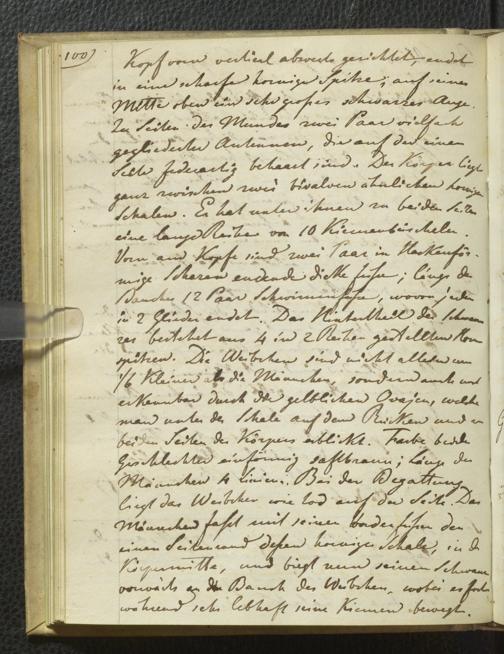 100)
Kopf vorn vertical abwerts gerichtet, endet
in eine scharfe hornige Spitze; auf seiner
Mitte oben ein sehr großes schwarzes Auge.
Zu Seiten des Mundes zwei Paar vielfach
gegliederter Antennen, die auf der einen
Seite federartig behaart sind. Der Körper liegt
ganz zwischen zwei bivalven ähnlichen hornigen
Schalen. Er hat unter ihnen zu beiden Seiten
eine lange Reihe von 10 Kiemenbüscheln.
Vorn am Kopfe sind zwei Paar in Hackenför-
mige Scheren endende dicke Füße; längs des
Bauches 12 Paar Schwimmfüße, wovon jeder
in 2 Glieder endet. Das Hintertheil des Schwan
zes bestehet aus 4 in 2 Reihen gestellten Horn
spitzen. Die Weibchen sind nicht allein um
1/6 kleiner als die Männchen, sondern auch
erkennbar durch die gelblichen Ovarien, welche
man unter der Schale auf dem Rücken und an
beiden Seiten des Körpers erblickt. Farbe beider
Geschlechter einförmig saftbraun; Länge des
Männchen 4 Linien. Bei der Begattung
liegt das Weibchen wie tod auf der Seite. Das
Männchen faßt mit seinen Vorderfüßen den
einen Seitenrand dessen horniger Schale, in der
Körpermitte, und biegt nun seinen Schwanz
vorwärts an den Bauch des Weibchen, wobei es fort
während sehr lebhaft seine Kiemen bewegt.